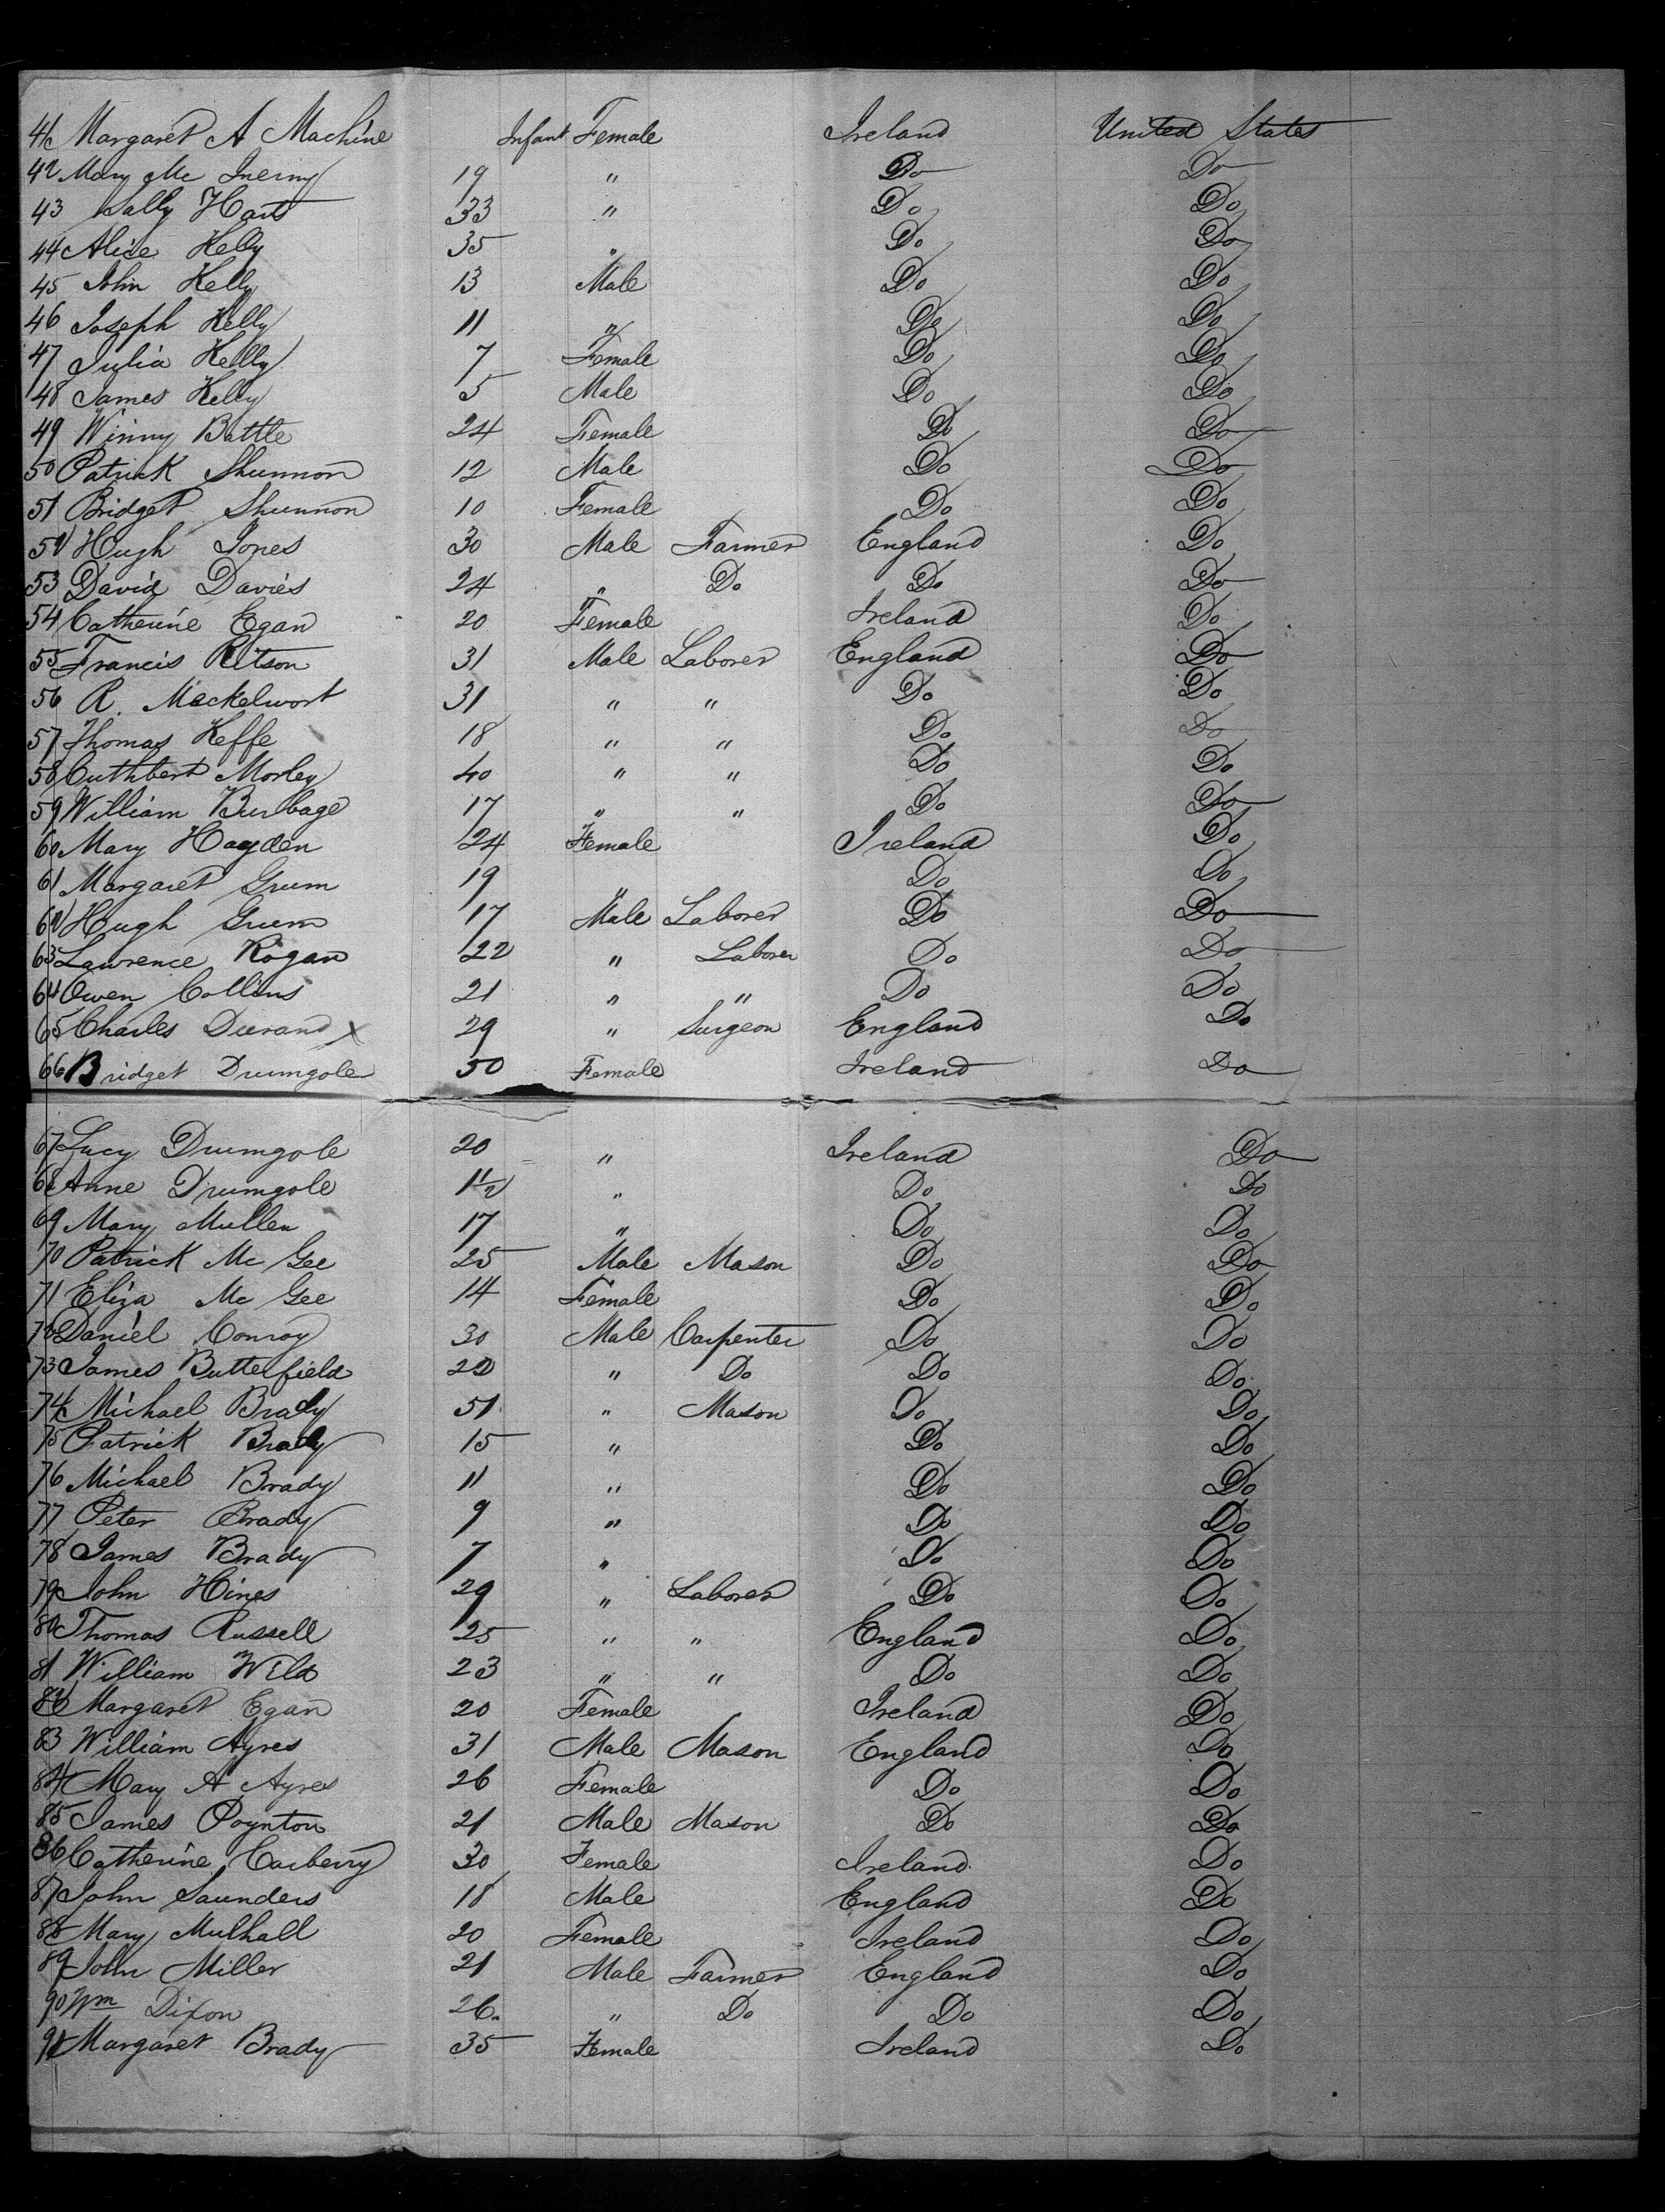 41 Margaret A Machine Infant Female Ireland United States
42 Mary Mc Inerny 19 " Do Do
43 Sally Hart 33 " Do Do
44 Alice Kelly 35 " Do Do
45 John Kelly 13 Male Do Do
46 Joseph Kelly 11 " Do Do
47 Julia Kelly 7 Female Do Do
48 James Kelly 5 Male Do Do
49 Winny Battle 24 Female Do Do
50 Patrick Shunnon 12 Male Do Do
51 Bridget Shunnon 10 Female Do Do
52 Hugh Jones 30 Male Farmer England Do
53 David Davies 24 " Do Do Do
54 Catherine Egan 20 Female Ireland Do
55 Francis Ritson 31 Male Laborer England Do
56 R. Mackelwort 31 " " Do Do
57 Thomas Keffe 18 " " Do Do
58 Cuthbert Morley 40 " " Do Do
59 William Burbage 17 " " Do Do
60 Mary Hayden 24 Female Ireland Do
61 Margaret Grum 19 " Do Do
62 Hugh Grum 17 Male Laborer Do Do
63 Lawrence Rogan 22 " Laborer Do Do
64 Owen Collins 21 " " Do Do
65 Charles Durand x 29 " Surgeon England Do
66 Bridget Drumgole 50 Female Ireland Do
67 Lucy Drumgole 20 " Ireland Do
68 Anne Drumgole 1 1/2 " Do Do
69 Mary Mullen 17 " Do Do
70 Patrick Mc Gee 25 Male Mason Do Do
71 Eliza Mc Gee 14 Female Do Do
72 Daniel Conroy 30 Male Carpenter Do Do
73 James Butterfield 20 " Do Do Do
74 Michael Brady 51 " Mason Do Do
75 Patrick Brady 15 " Do Do
76 Michael Brady 11 " Do Do
77 Peter Brady 9 " Do Do
78 James Brady 7 " Do Do
79 John Hines 29 " Laborer Do Do
80 Thomas Russell 25 " " England Do
81 William Wild 23 " " Do Do
82 Margaret Egan 20 Female Ireland Do
83 William Ayres 31 Male Mason England Do
84 Mary A Ayres 26 Female Do Do
85 James Poynton 21 Male Mason Do Do
86 Catherine Carberry 30 Female Ireland Do
87 John Saunders 18 Male England Do
88 Mary Mulhall 20 Female Ireland Do
89 John Miller 21 Male Farmer England Do
90 Wm Dixon 26 " Do Do Do
91 Margaret Brady 35 Female Ireland Do